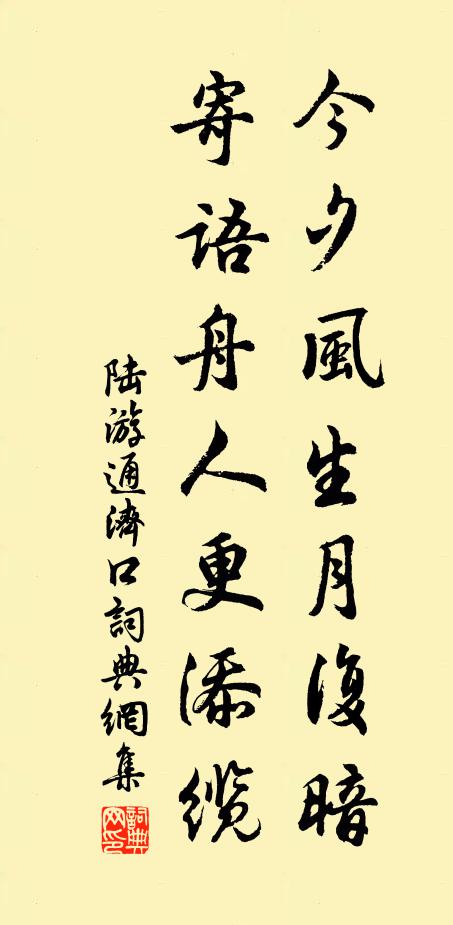 今夕風生月復暗
寄语舟人更添缆
陆游通濟口詞典網集
詞典
网印